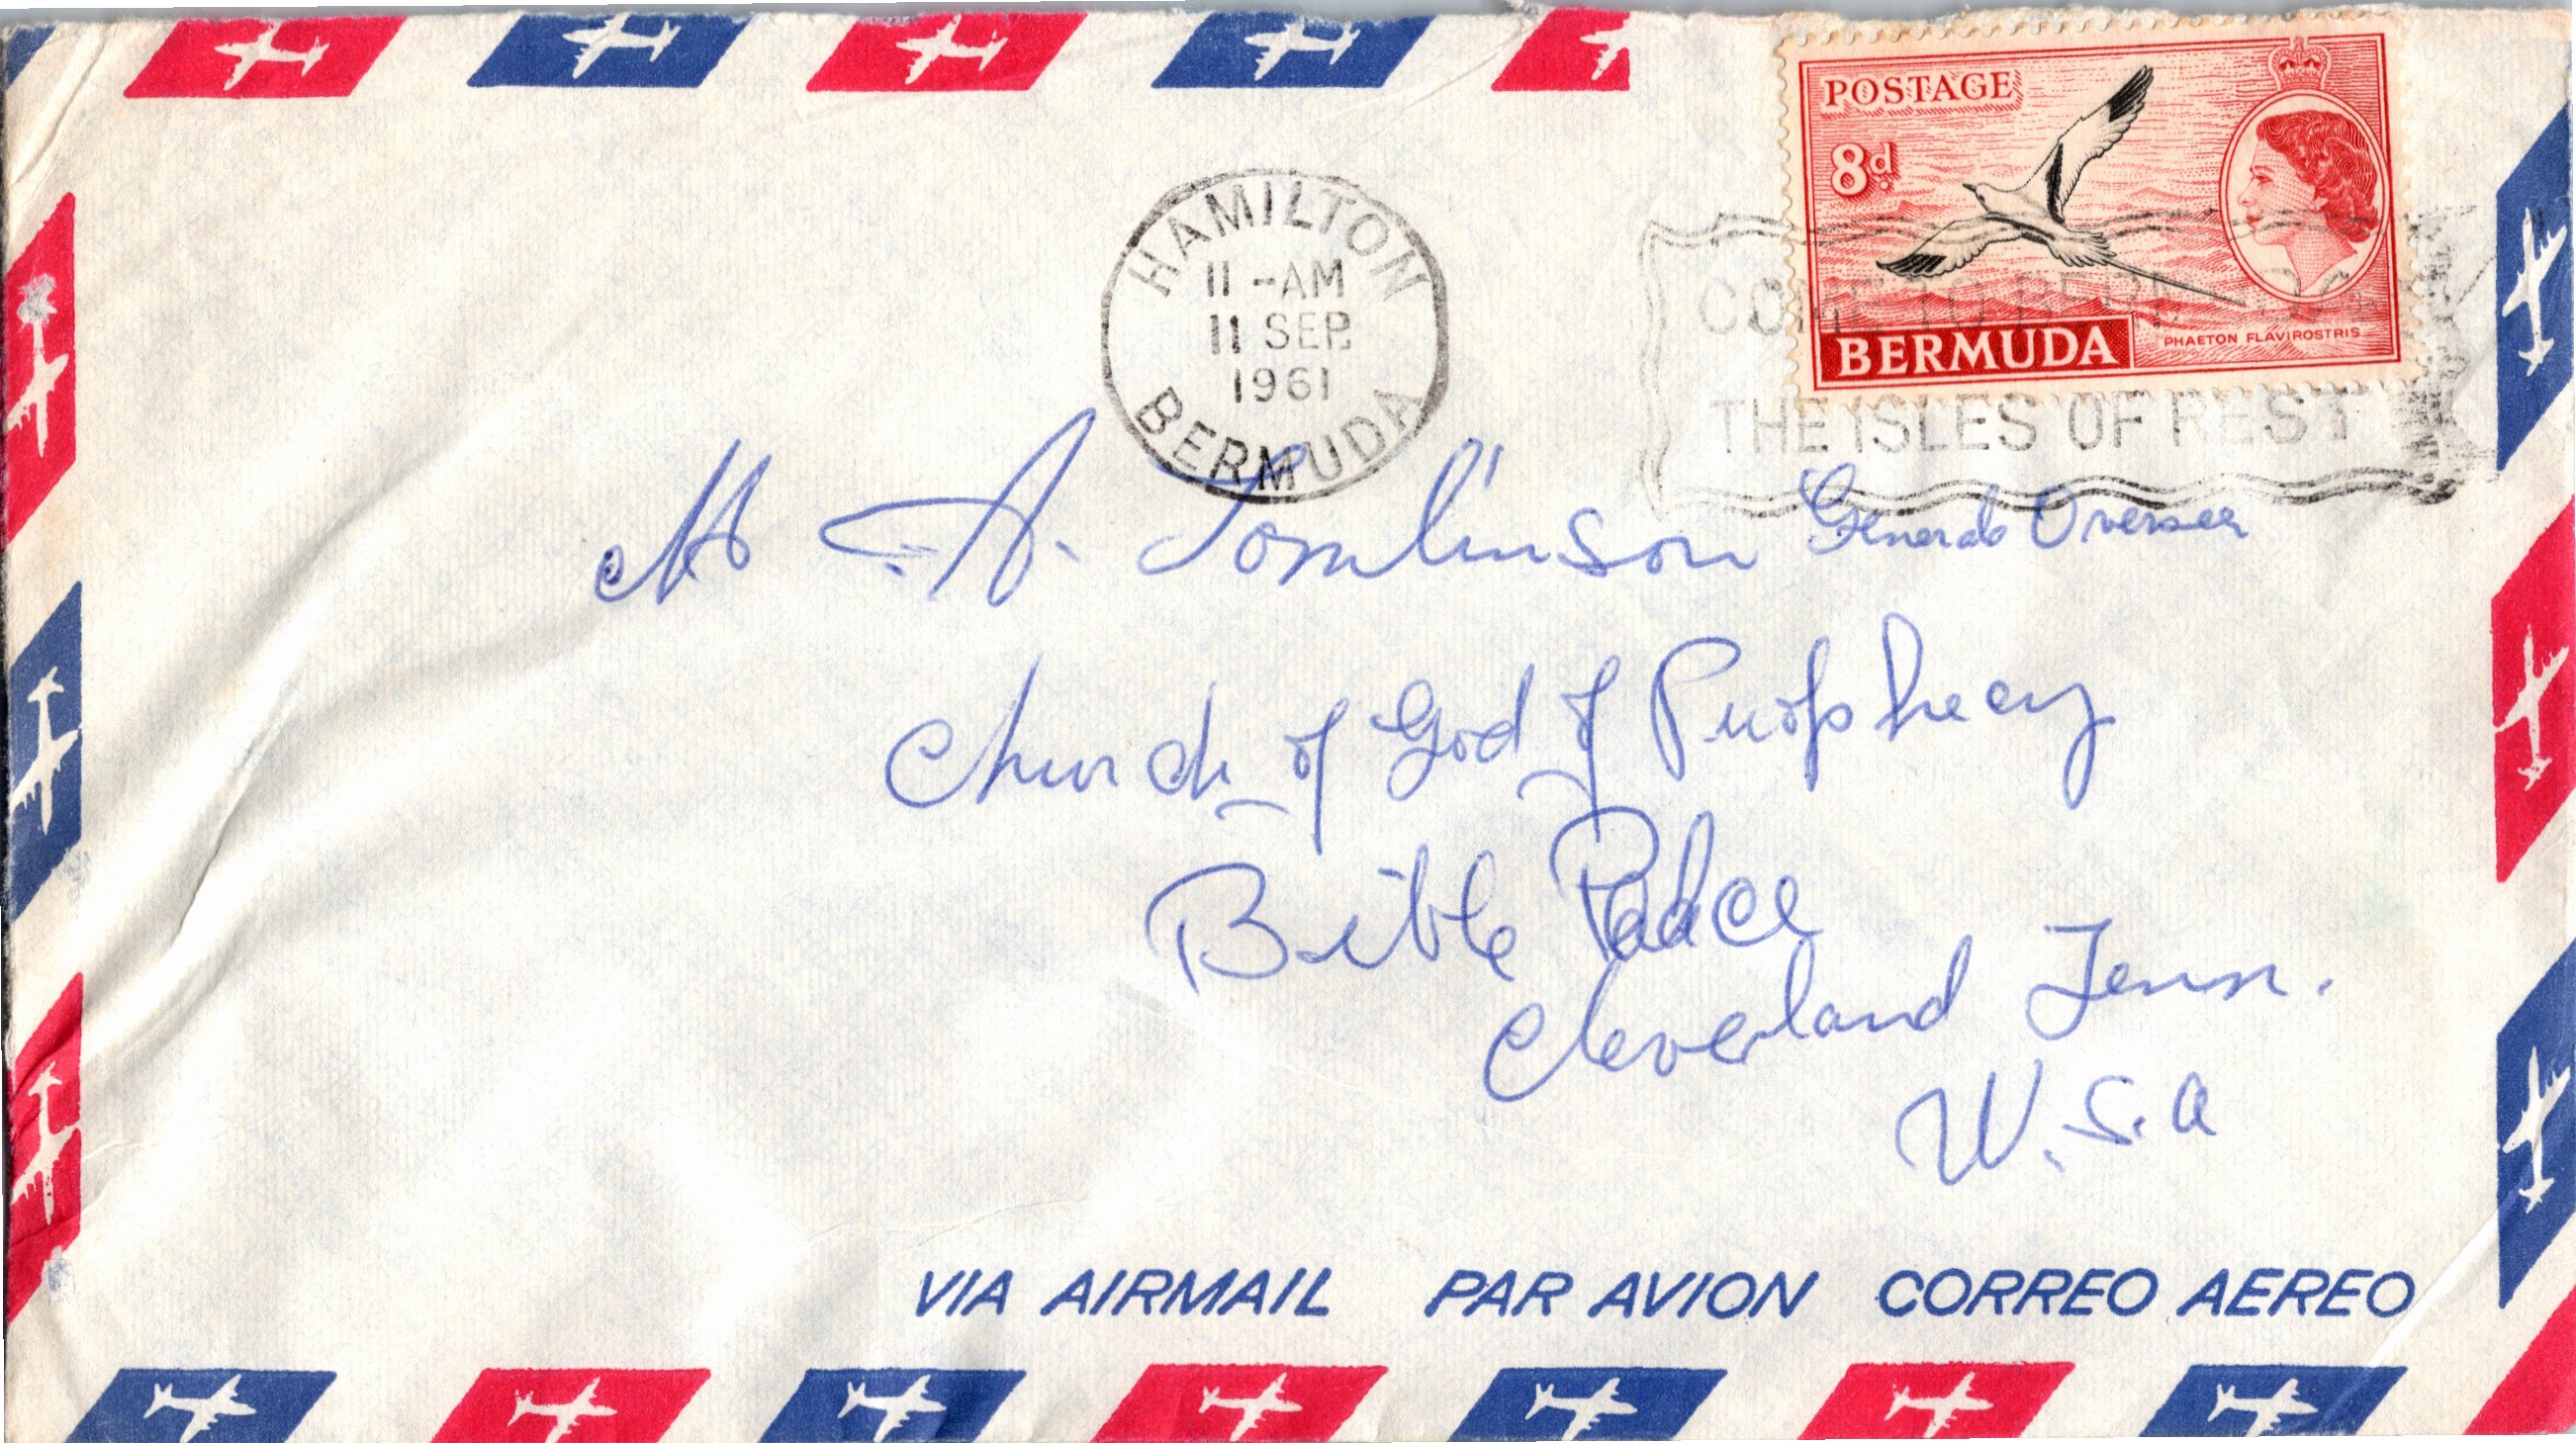 POSTAGE
8d
BERMUDA
PHAETON FLAVIROSTRIS
HAMILTON
11 -AM
11 SEP.
1961
BERMUDA
COME TO
THE ISLES OF REST
M A. Tomlinson General Overseer
Church of God of Prophecy
Bible Palace
Cleveland Tenn.
U.S.A
VIA AIRMAIL PAR AVION CORREO AEREO